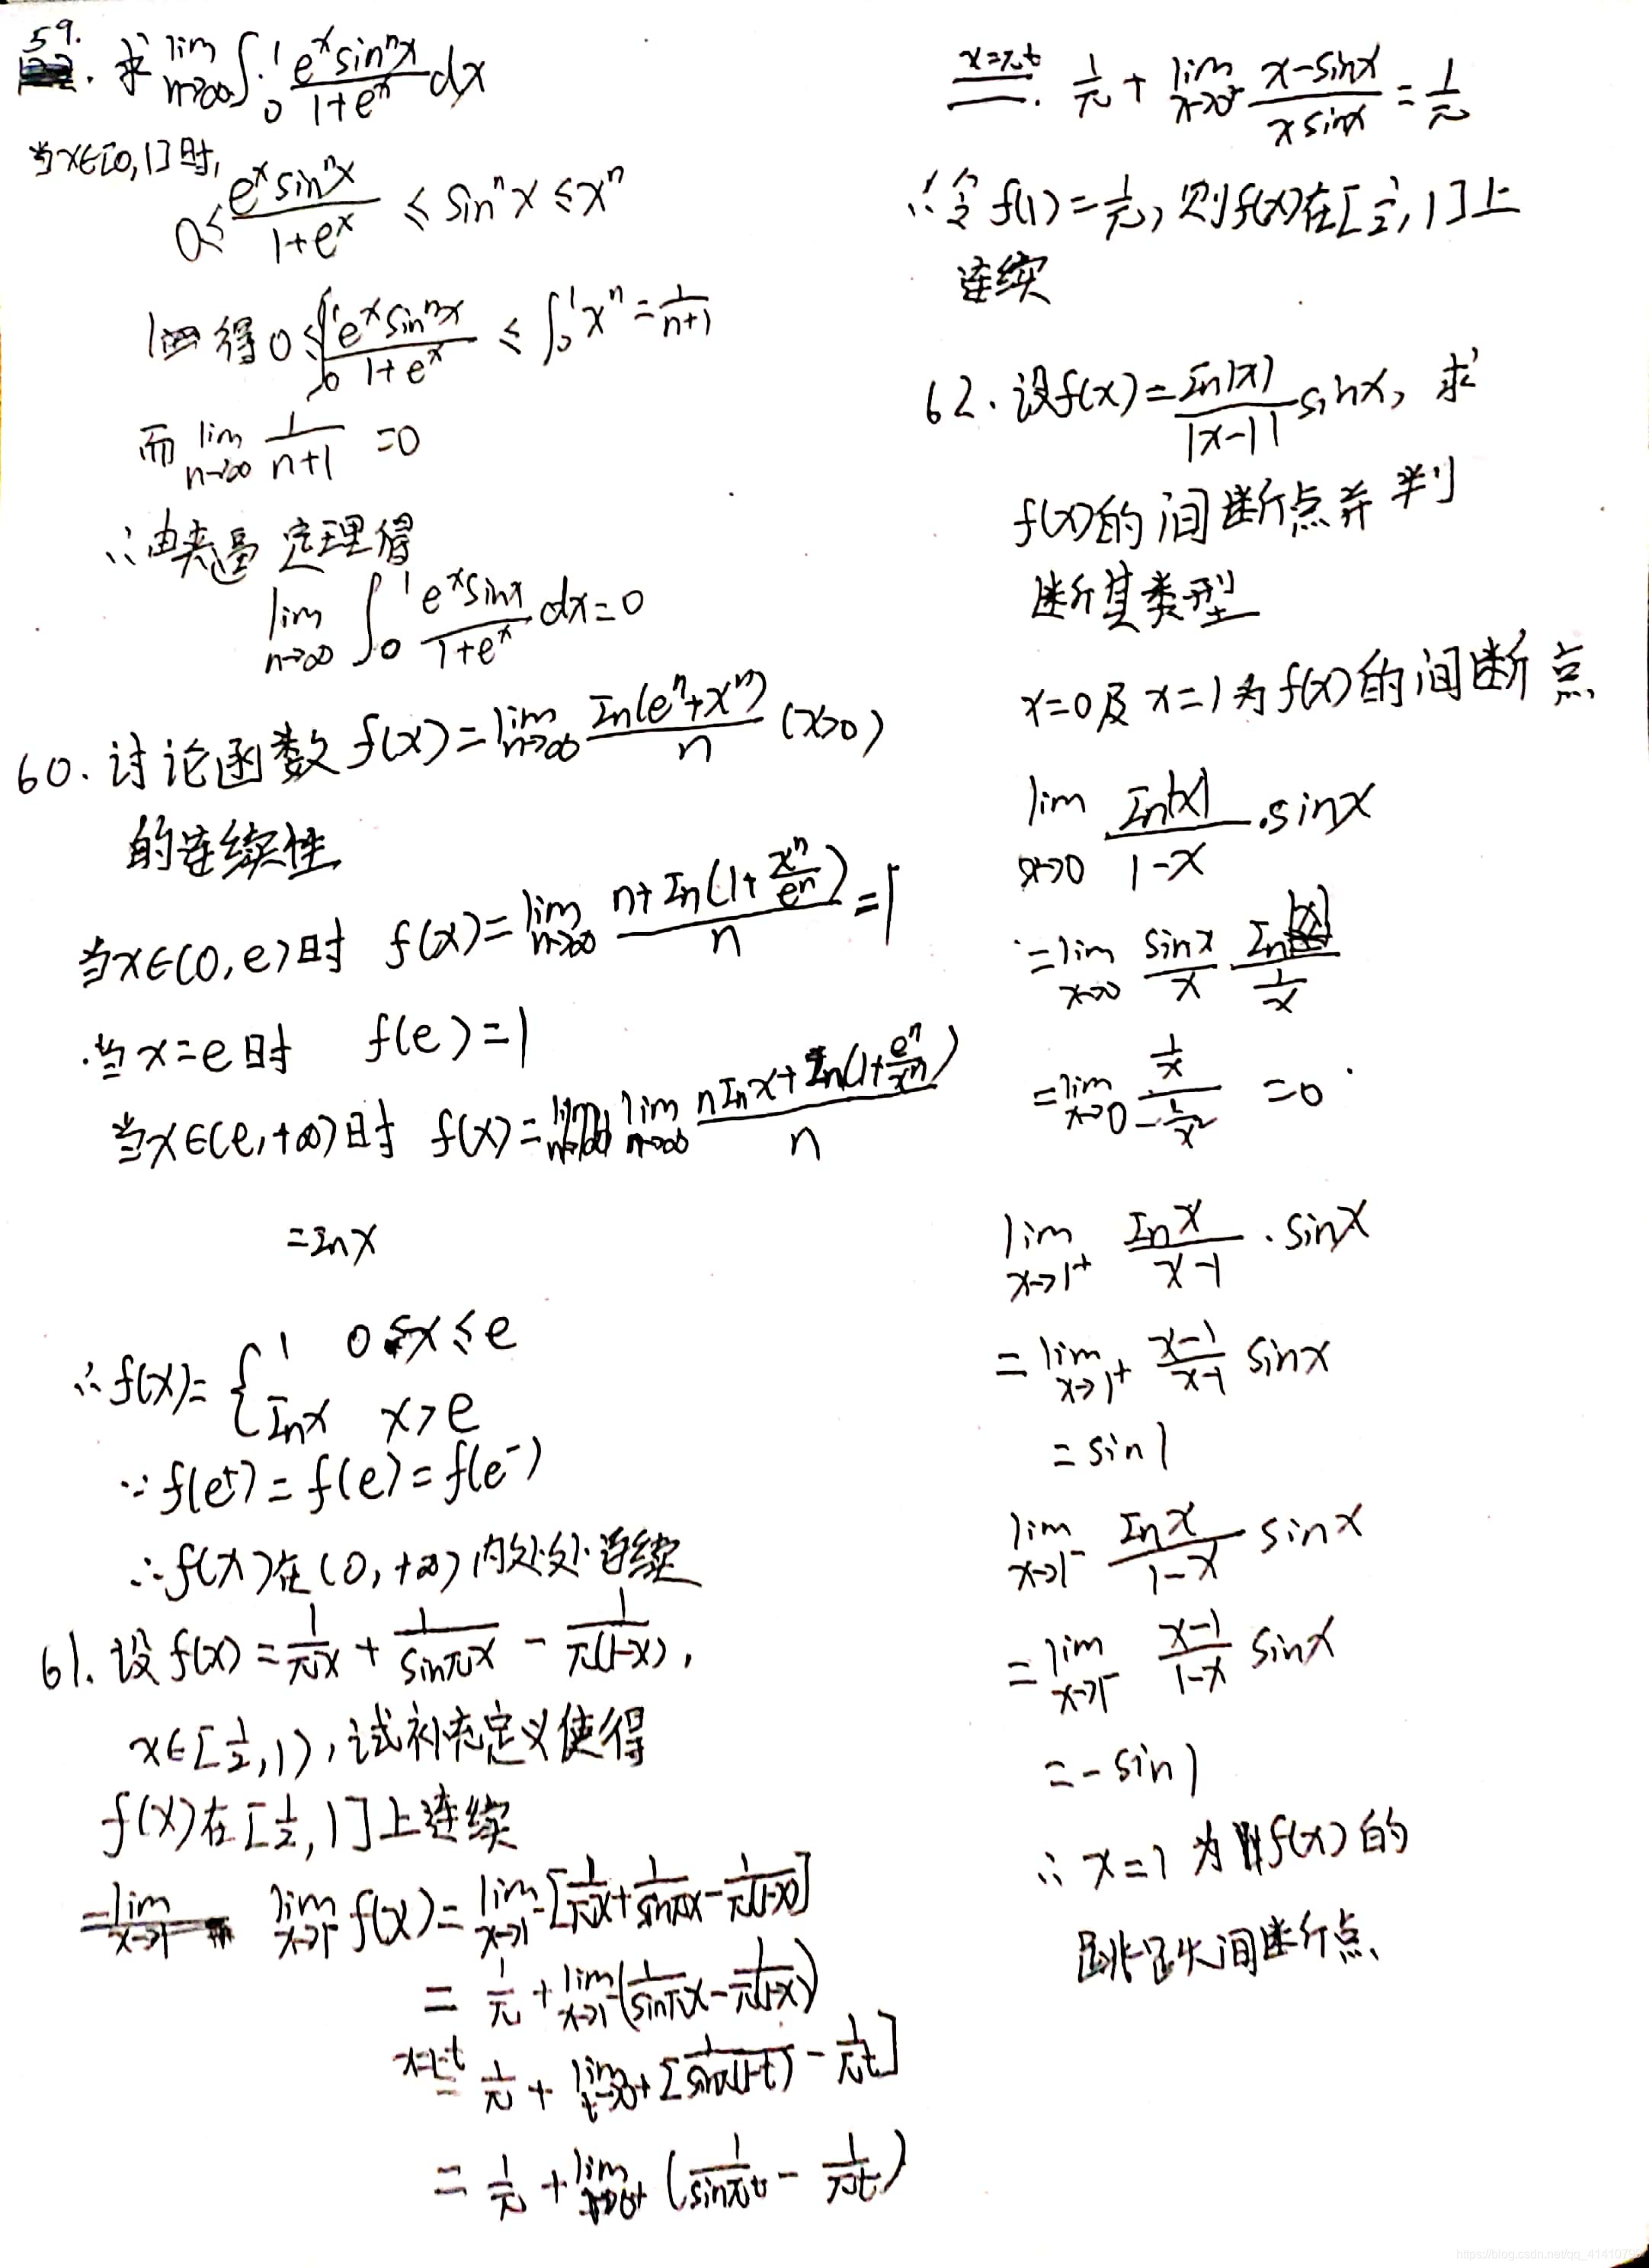 59. 求 lim n→∞ ∫₀¹ (e^x sin^n x)/(1+e^x) dx
当x∈[0,1]时,
0≤ (e^x sin^n x)/(1+e^x) ≤ sin^n x ≤ x^n
得 0≤ ∫₀¹ (e^x sin^n x)/(1+e^x) ≤ ∫₀¹ x^n = 1/(n+1)
而 lim n→∞ 1/(n+1) =0
∴由夹逼定理得
lim n→∞ ∫₀¹ (e^x sin x)/(1+e^x) dx=0
60. 讨论函数 f(x)= lim n→∞ In(e^n+x^n)/n (x>0)
的连续性
当x∈(0,e)时 f(x)= lim n→∞ (n+In(1+x^n/e^n))/n =1
当x=e时 f(e)=1
当x∈(e,+∞)时 f(x)= lim n→∞ (nInx+In(1+e^n/x^n))/n
=Inx
∴f(x)= { 1 0<x≤e
Inx x>e
∵f(e⁺)=f(e)=f(e⁻)
∴f(x)在(0,+∞)内处处连续
61. 设f(x)= 1/(πx) + 1/(sinπx) - 1/(π(1-x)),
x∈[1/2,1),试补充定义使得
f(x)在[1/2,1]上连续
lim x→1⁻ f(x)= lim x→1⁻ [1/(πx)+1/(sinπx)-1/(π(1-x))]
= 1/π + lim x→1⁻ (1/(sinπx)-1/(π(1-x)))
x=1-t = 1/π + lim t→0+ [1/(sinπ(1-t)) - 1/(πt)]
= 1/π + lim t→0+ (1/(sinπt) - 1/(πt))
x=πt = 1/π + lim x→0⁺ (x-sinx)/(xsinx) = 1/π
∴令f(1)=1/π,则f(x)在[1/2,1]上
连续
62. 设f(x)= In|x|/|x-1| sinx, 求
f(x)的间断点并判
断其类型
x=0及x=1为f(x)的间断点
lim x→0 In|x|/(1-x) ·sinx
= lim x→0 (sinx)/x · In|x|/(1/x)
= lim x→0 (1/x)/(-1/x²) =0
lim x→1⁺ Inx/(x-1) · sinx
= lim x→1⁺ (x-1)/(x-1) sinx
= sin1
lim x→1⁻ Inx/(1-x) sinx
= lim x→1⁻ (x-1)/(1-x) sinx
=-sin1
∴x=1为f(x)的
跳跃间断点